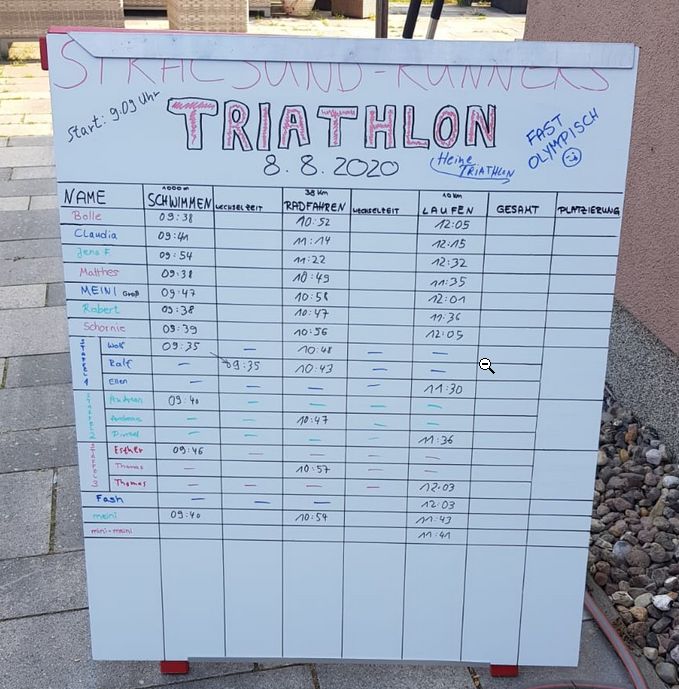 STRALSUND-RUNNERS
Start: 9:09 Uhr
TRIATHLON
FAST
OLYMPISCH
8.8.2020
(Heine
TRIATHLON
1000m 38 Km 10 km
NAME SCHWIMMEN WECHSELZEIT RADFAHREN WECHSELZEIT LAUFEN GESAMT PLATZIERUNG
Bolle 09:38 10:52 12:05
Claudia 09:41 11:14 12:15
Jens F 09:54 11:22 12:32
Matthes 09:38 10:49 11:35
MEINI Groß 09:47 10:58 12:01
Robert 09:38 10:47 11:36
Schornie 09:39 10:56 12:05
STAFFEL 1
Wolf 09:35 – 10:48 – –
Ralf – 09:35 10:43 – –
Ellen – – – – 11:30
STAFFEL 2
Andreas 09:40 – – – –
– – 10:47 – –
– – – – 11:36
STAFFEL 3
Esther 09:46 – – – –
Thomas – – 10:57 – –
Thomas – – – – 12:03
Fash – – – – 12:03
meini 09:40 10:54 11:43
mini-meini 11:41